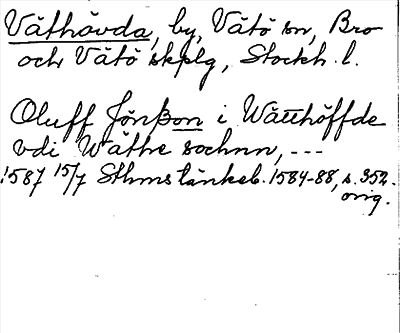 Väthävda, by, Vätö sn, Bro
och Vätö skplg, Stockh. l.
Oluff Jönßon i Wätthöffde
vdi Wäthe sochnn, ---
1587 15/7 Sthms tänkeb. 1584-88, s. 352.
orig.